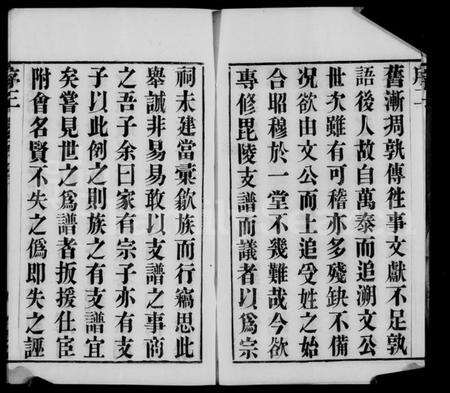 舊漸凋孰傳徃事文獻不足孰
語後人故自萬泰而追溯文公
世次雖有可稽亦多殘缺不備
况欲由文公而上追受姓之始
合昭穆於一堂不幾難哉今欲
專修毘陵支譜而議者以爲宗
祠未建當彙歛族而行竊思此
舉誠非易易敢以支譜之事商
之吾子余曰家有宗子亦有支
子以此例之則族之有支譜宜
矣嘗見世之爲譜者扳援仕宦
附會名賢不失之僞即失之誣